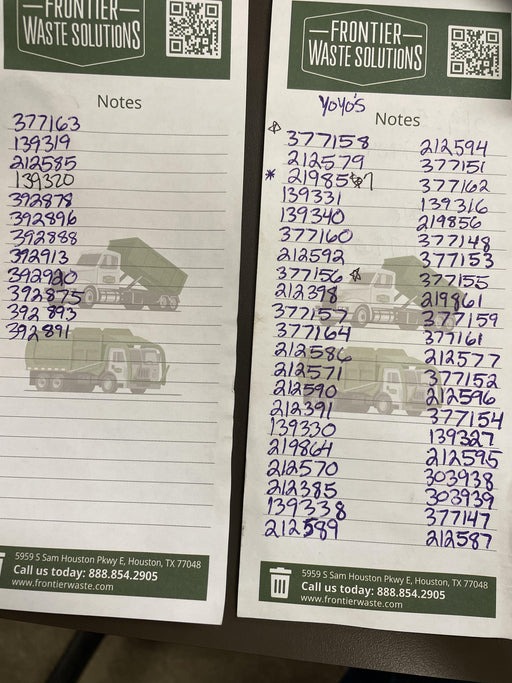 FRONTIER
WASTE SOLUTIONS
Notes
377163
139319
212585
139320
392878
392896
392888
392913
392920
392875
392893
392891
5959 S Sam Houston Pkwy E, Houston, TX 77048
Call us today: 888.854.2905
www.frontierwaste.com
FRONTIER
WASTE SOLUTIONS
YoYo's
Notes
377158
212579
* 219857
139331
139340
377160
212592
377156
212398
377157
377164
212586
212571
212590
212391
139330
219864
212570
212385
139338
212589
212594
377151
377162
139316
219856
377148
377153
377155
219861
377159
377161
212577
377152
212596
377154
139327
212595
303938
303939
377147
212587
5959 S Sam Houston Pkwy E, Houston, TX 77048
Call us today: 888.854.2905
www.frontierwaste.com